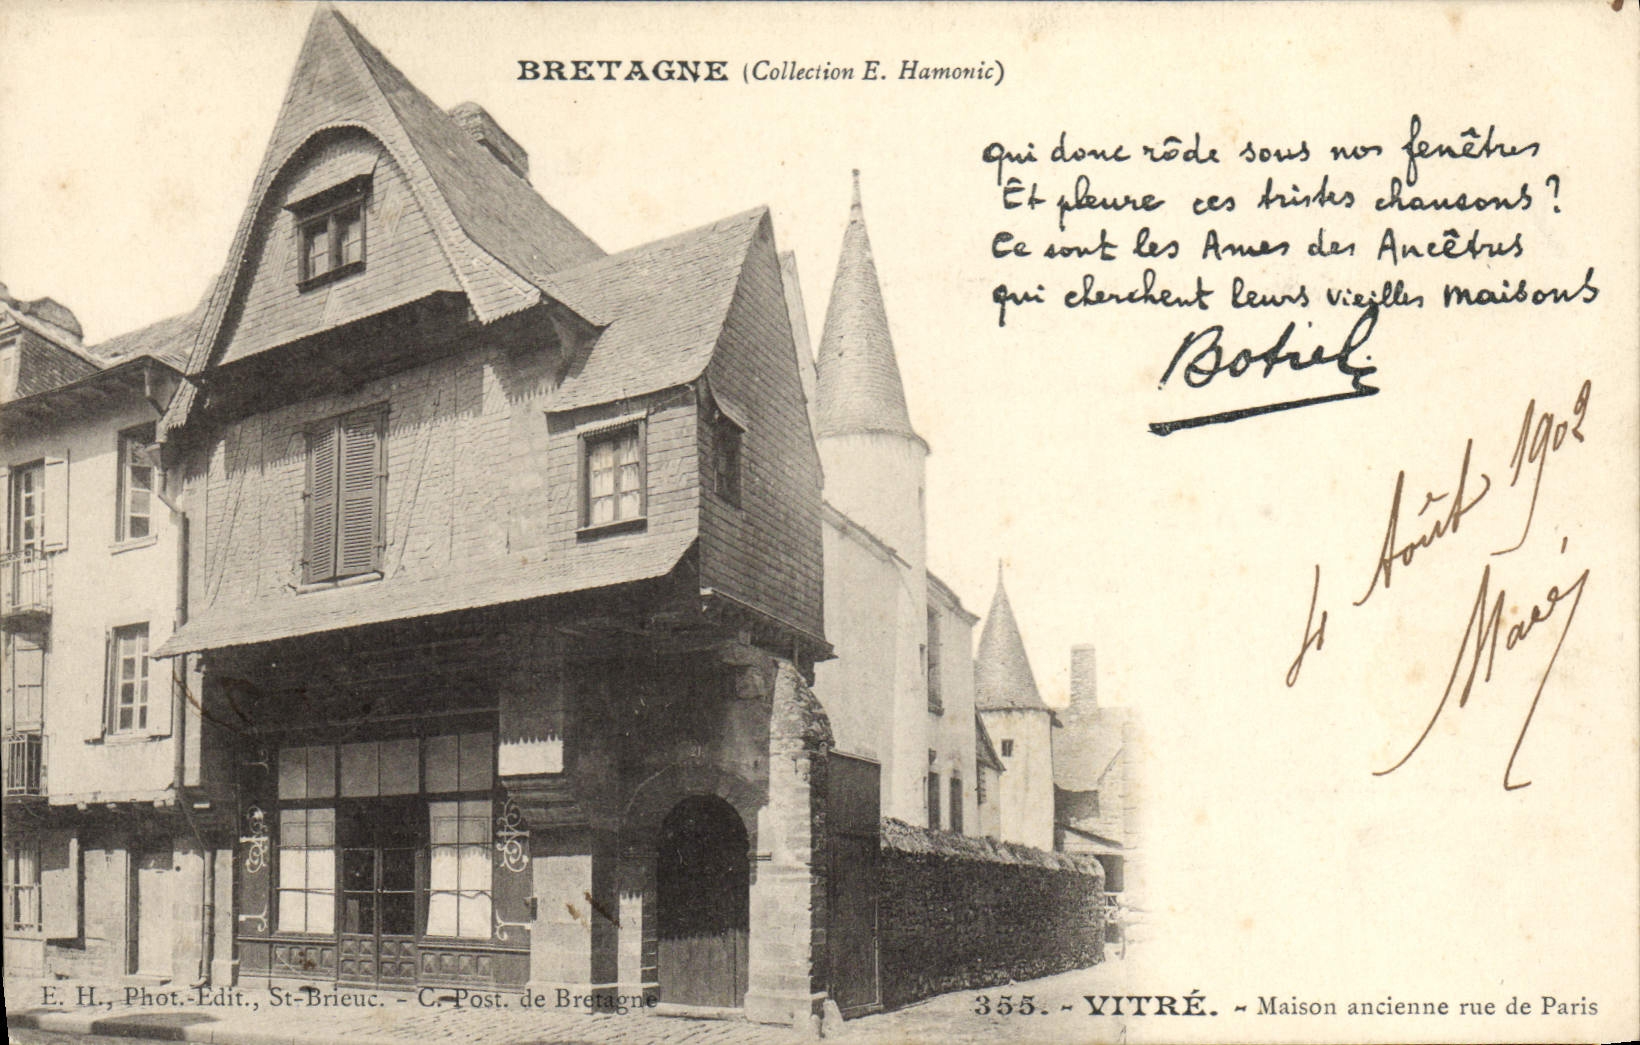 BRETAGNE (Collection E. Hamonic)
qui donc rôde sous nos fenêtres
Et pleure ces tristes chansons ?
Ce sont les Ames des Ancêtres
qui cherchent leurs vieilles maisons
Botrel
4 Août 1902
21
E. H., Phot.-Edit., St-Brieuc. - C. Post. de Bretagne
355. - VITRÉ. - Maison ancienne rue de Paris